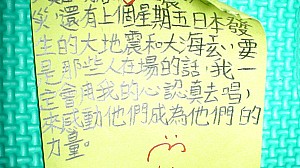 還有上個星期五日本發
生的大地震和大海亥,要
是那些人在場的話,我一
主會用我的心認真去唱,
來感動他們成為他們的
力量。